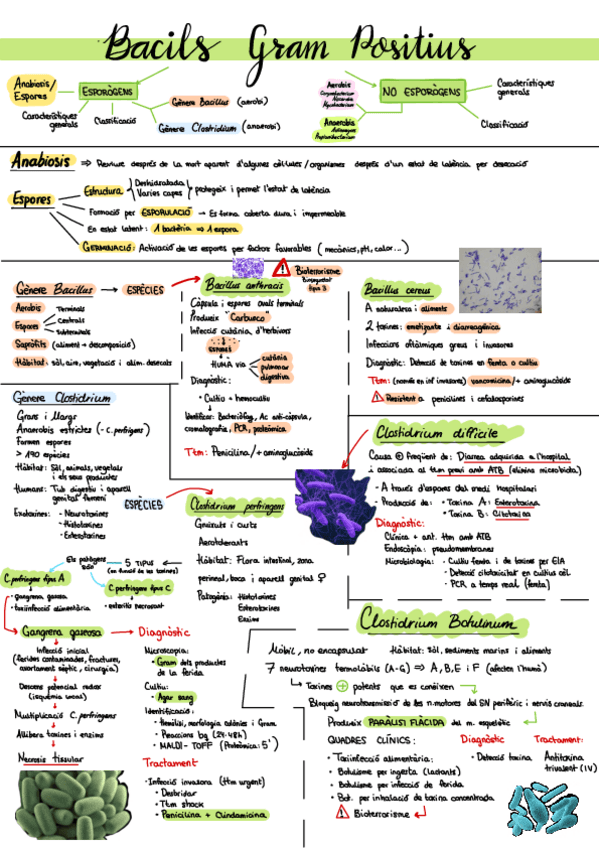 Bacils Gram Positius
Anabiosis/
Espores
ESPORÒGENS
Característiques
generals
Classificació
Gènere Bacillus (aerobi)
Gènere Clostridium (anaerobi)
Aerobis
Corynebacterium
Anaerobis
Actinomyces
NO ESPORÒGENS
Característiques
generals
Classificació
Anabiosis ⇒ Reviure després de la mort aparent d'algunes cèl·lules/organismes després d'un estat de latència per desecació
Espores
Estructura
Deshidratada
Vàries capes
protegeix i permet l'estat de latència
Formació per ESPORULACIÓ → Es forma coberta dura i impermeable
En estat latent: 1 bactèria ⇒ 1 espora
GERMINACIÓ: Activació de les espores per factors favorables (mecànics, pH, calor...)
Gènere Bacillus → ESPÈCIES
Aerobis
Espores
Terminals
Centrals
Subterminals
Sapròfits (aliment → descomposició)
Hàbitat: sòl, aire, vegetació i alim. desecats
Bioterrorisme
Bioseguretat
tipus 3
Bacillus anthracis
Càpsula i espores ovals terminals
Produeix "Carbunco"
Infecció cutània, d'herbívors
espores
HUMÀ via
cutània
pulmonar
digestiva
Diagnòstic:
• Cultiu + hemocultiu
Identificar: Bacteriòfag, Ac anti-càpsula,
cromatografia, PCR, proteòmica
Ttm: Penicilina/+ aminoglucòsids
Bacillus cereus
A naturalesa i aliments
2 toxines: emetizante i diarreagènica
Infeccions oftàlmiques greus i invasores
Diagnòstic: Detecció de toxines en femta o cultiu
Ttm: (només en inf invasores) vancomicina/+ aminoglucòsids
Resistent a penicilines i cefalosporines
Gènere Clostridium
Grans i llargs
Anaerobis estrictes (- C. perfringens)
Formen espores
> 190 espècies
Hàbitat: Sòl, animals, vegetals
i els seus productes
Humans: Tub digestiu i aparell
genital femení
Exotoxines: - Neurotoxines
- Histotoxines
- Enterotoxines
ESPÈCIES
Clostridium perfringens
Gruixuts i curts
Aerotolerants
Hàbitat: Flora intestinal, zona
perineal, boca i aparell genital ♀
Patogènia: Histotoxines
Enterotoxines
Enzims
5 TIPUS
(en funció de les toxines)
Els patògens
són
C. perfringens tipus A
• gangrena gasosa
• toxiinfecció alimentària
C. perfringens tipus C
• enteritis necrosant
Gangrena gasosa → Diagnòstic
Infecció inicial
(ferides contaminades, fractures,
avortament sèptic, cirurgia)
Descens potencial redox
(isquèmia local)
Multiplicació C. perfringens
Allibera toxines i enzims
Necrosis tissular
Microscopia:
• Gram dels productes
de la ferida
Cultiu:
• Agar sang
Identificació:
• Hemòlisi, morfologia colònies i Gram
• Reaccions bq (24-48h)
• MALDI-TOFF (Proteòmica: 5')
Tractament
• Infecció invasora (ttm urgent)
• Desbridar
• Ttm shock
• Penicilina + Clindamicina
Clostidrium difficile
Causa + freqüent de: Diarrea adquirida a l'hospital
i associada al ttm previ amb ATB (elimina microbiota)
- A través d'espores del medi hospitalari
- Producció de: • Toxina A: Enterotoxina
• Toxina B: Citotoxina
Diagnòstic:
Clínica + ant. ttm amb ATB
Endoscòpia: pseudomembranes
Microbiologia: • Cultiu femta i de toxines per EIA
• Detecció citotoxicitat en cultius cèl.
• PCR a temps real (femta)
Clostidrium Botulinum
Mòbil, no encapsulat
Hàbitat: Sòl, sediments marins i aliments
7 neurotoxines termolàbils (A-G) ⇒ A, B, E i F (afecten l'humà)
Toxines + potents que es coneixen
Bloqueig neurotransmissió de les n. motores del SN perifèric i nervis cranials.
Produeix PARÀLISI FLÀCIDA del m. esquelètic
QUADRES CLÍNICS:
• Toxiinfecció alimentària:
• Botulisme per ingesta (lactants)
• Botulisme per infecció de ferida
• Bot. per inhalació de toxina concentrada
Bioterrorisme
Diagnòstic
• Detecció toxina
Tractament:
Antitoxina
trivalent (IV)